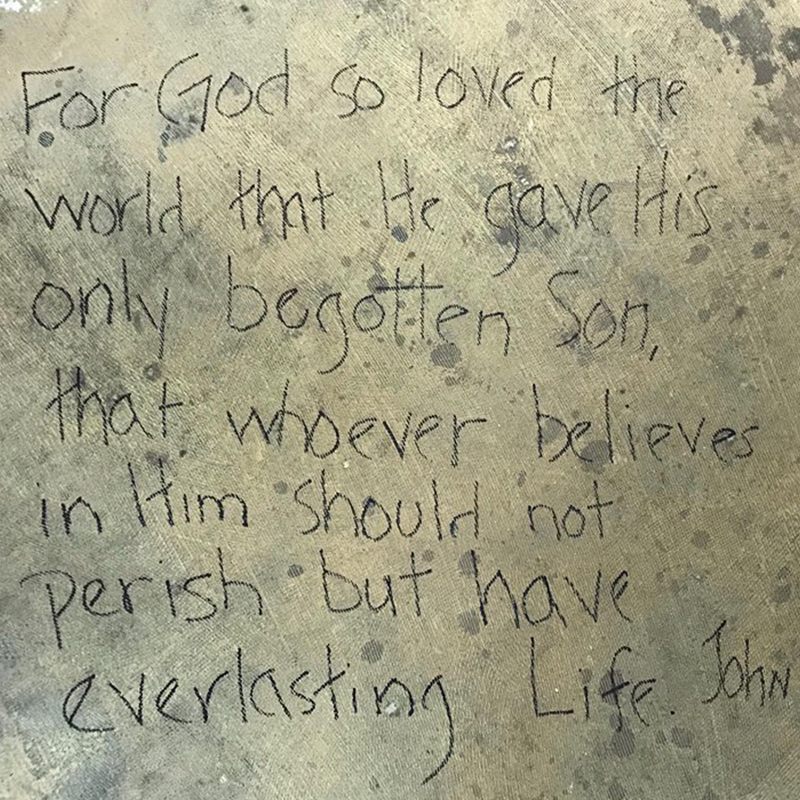 For God so loved the
world that He gave His
only begotten Son,
that whoever believes
in Him should not
perish but have
everlasting Life. John